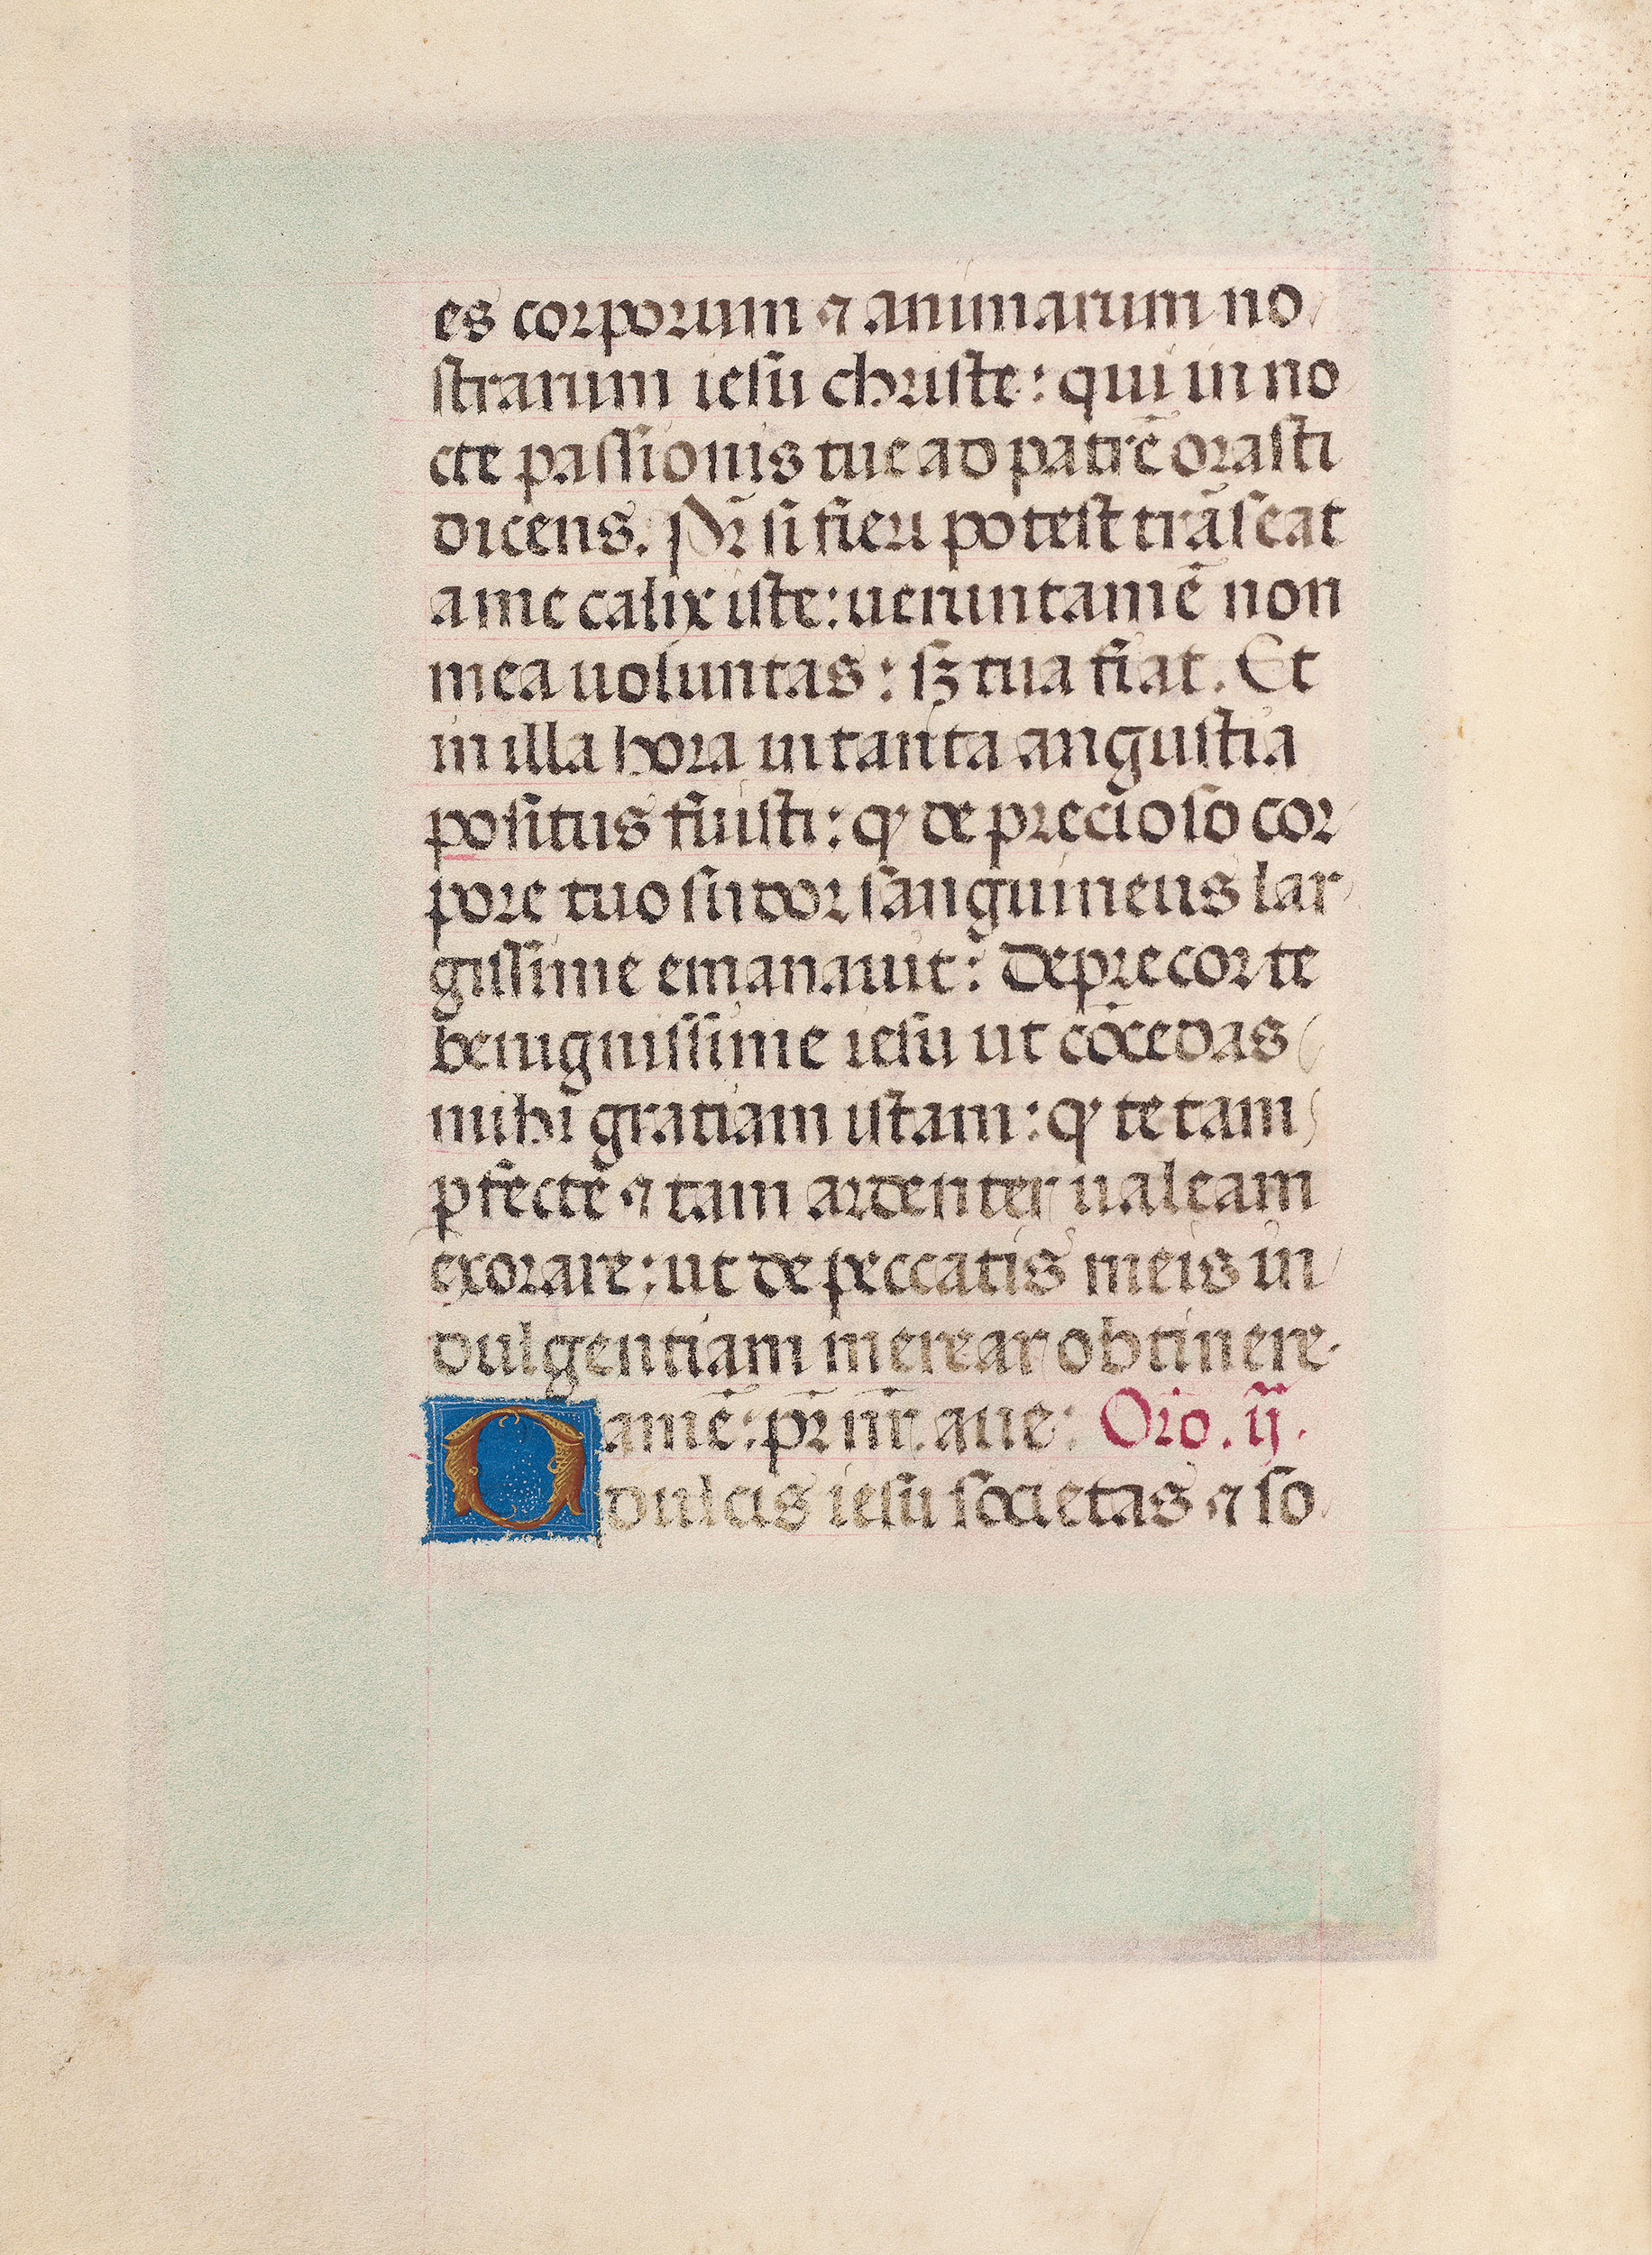 es corporum ⁊ animarum no
strarum iesu christe: qui in no
cte passionis tue ad patrē orasti
dicens. Pr̄ si fieri potest trāseat
a me calix iste: ueruntamē non
mea uoluntas: sꝫ tua fiat. Et
in illa hora in tanta angustia
positus fuisti: ꝙ de precioso cor
pore tuo sudor sanguineus lar
gissime emanauit: Deprecor te
benignissime iesu ut cōcedas
mihi gratiam istam: ꝙ te tam
ꝑfecte ⁊ tam ardenter ualeam
exorare: ut de peccatis meis in
dulgentiam merear obtinere.
amē: pr̄ nr̄. aue: Oro. ij.
O dulcis iesu societas ⁊ so